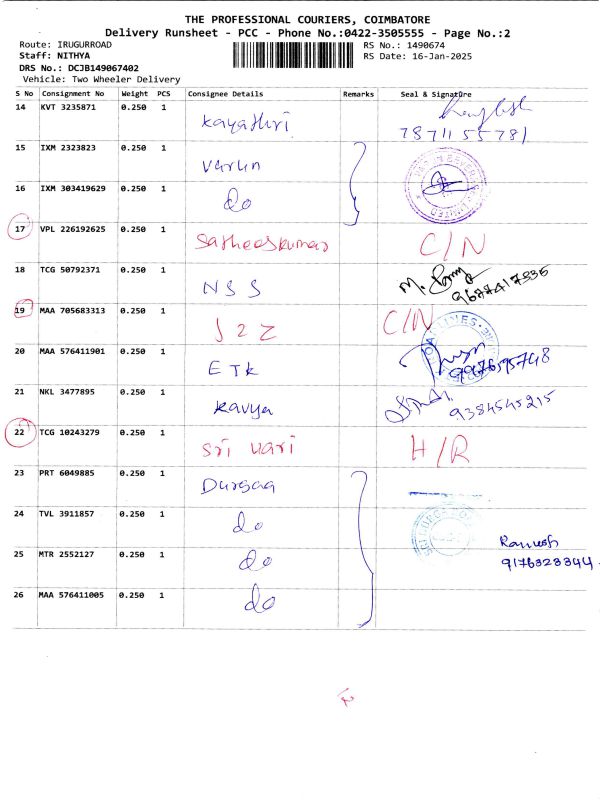 THE PROFESSIONAL COURIERS, COIMBATORE
Delivery Runsheet - PCC - Phone No.:0422-3505555 - Page No.:2
Route: IRUGURROAD
RS No.: 1490674
Staff: NITHYA
RS Date: 16-Jan-2025
DRS No.: DCJB149067402
Vehicle: Two Wheeler Delivery
S No Consignment No Weight PCS Consignee Details Remarks Seal & Signature
14 KVT 3235871 0.250 1 Kayathri 7871155781
15 IXM 2323823 0.250 1 Varun
16 IXM 303419629 0.250 1 do
17 VPL 226192625 0.250 1 Satheeskumar C/N
18 TCG 50792371 0.250 1 NSS 9677417335
19 MAA 705683313 0.250 1 J2Z C/N
20 MAA 576411901 0.250 1 ETK 9976595748
21 NKL 3477895 0.250 1 Kavya 9384545215
22 TCG 10243279 0.250 1 Sri Vari H/R
23 PRT 6049885 0.250 1 Durgaa
24 TVL 3911857 0.250 1 do
25 MTR 2552127 0.250 1 do Ramesh 9176323344
26 MAA 576411005 0.250 1 do